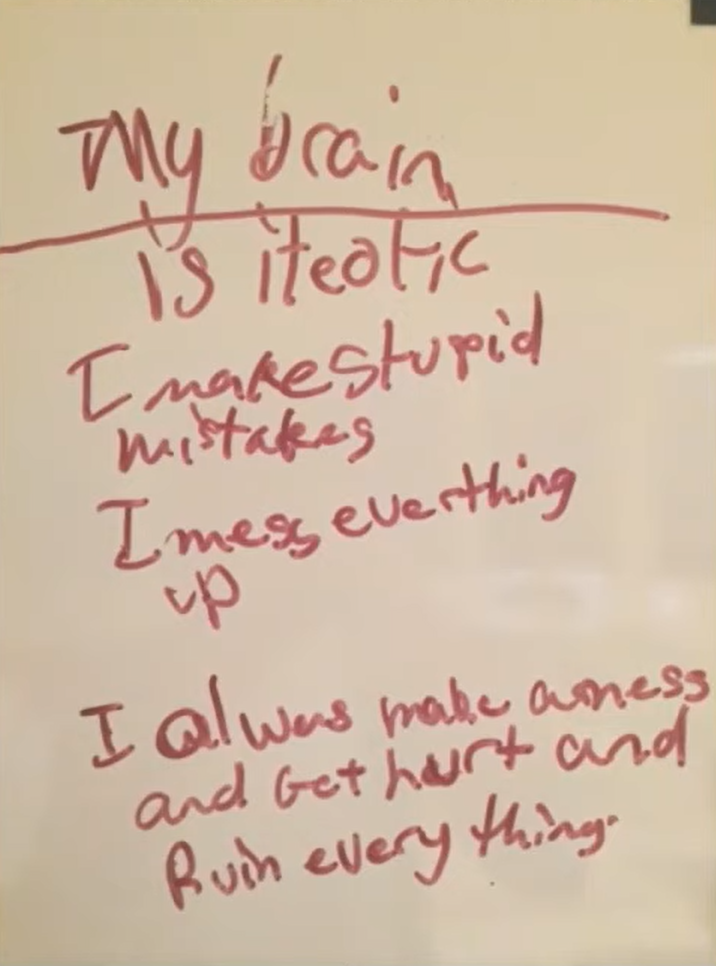 My brain
is iteotic
I make stupid
mistakes
I mess everthing
up
I alwas make a mess
and Get hurt and
Ruin every thing.